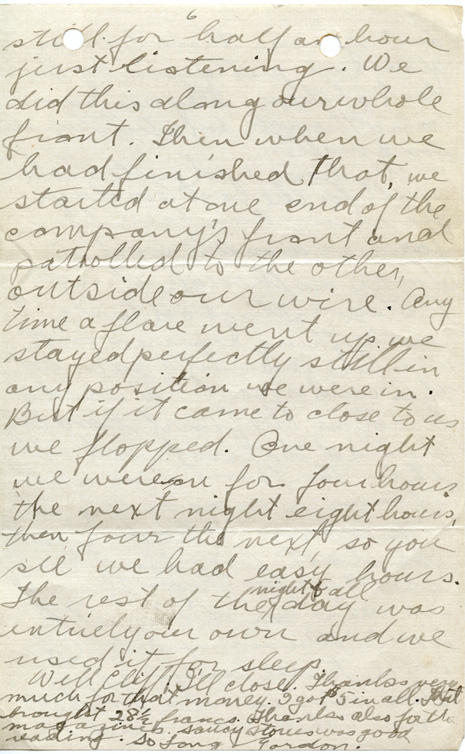 6
still for half an hour
just listening. We
did this along our whole
front. Then when we
had finished that, we
started at one end of the
company's front and
patrolled to the other,
outside our wire. Any
time a flare went up we
stayed perfectly still in
any position we were in.
But if it came to close to us
we flopped. One night
we were on for four hours
the next night eight hours,
then four the next so you
see we had easy hours.
night & all
The rest of the day was
entirely our own and we
used it for sleep.
Well Cliff I'll close. Thanks very
much for that money. I got $5 in all. It
brought 28½ francs. Thanks also for the
magazines. Saucy Stories was good
reading. So Long Gordon.